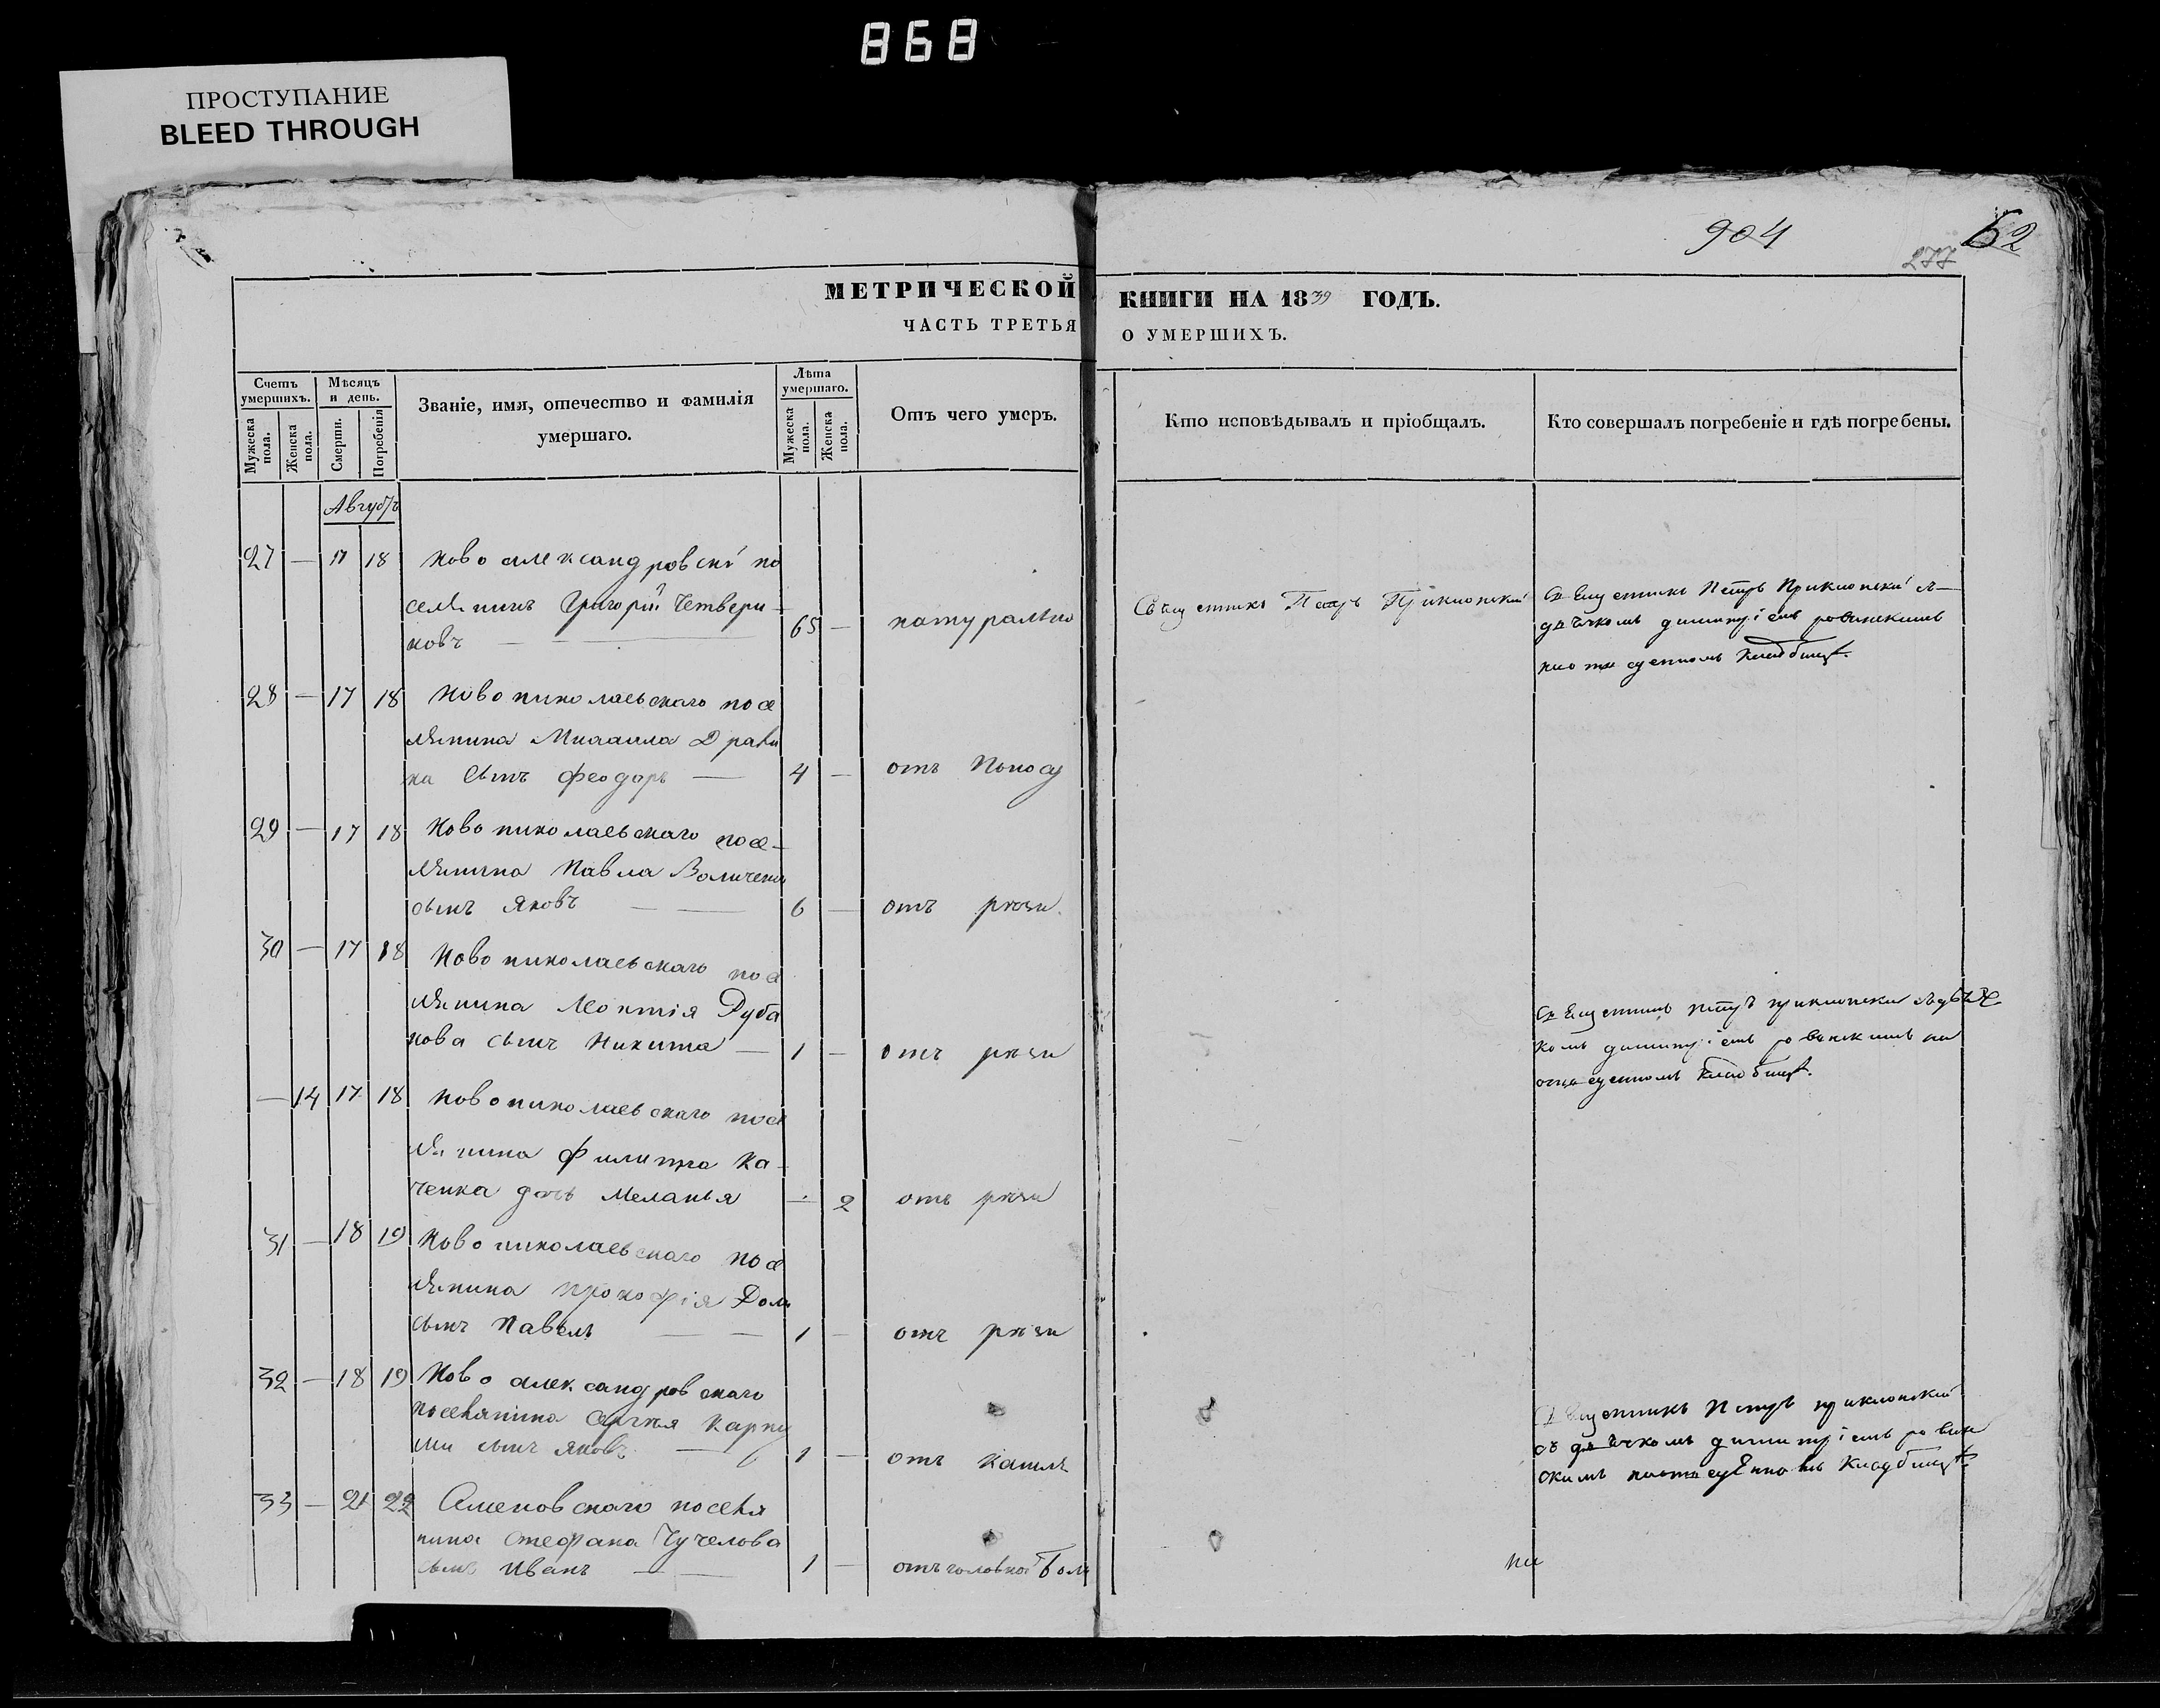 868
ПРОСТУПАНИЕ
BLEED THROUGH
904
62
277
МЕТРИЧЕСКОЙ КНИГИ НА 1839 ГОДЪ.
ЧАСТЬ ТРЕТЬЯ О УМЕРШИХЪ.
Счетъ умершихъ.
Мужеска пола.
Женска пола.
Мѣсяцъ и день.
Смерти.
Погребенія
Званіе, имя, отечество и фамилія
умершаго.
Лѣта умершаго.
Мужеска пола.
Женска пола.
Отъ чего умеръ.
Кто исповѣдывалъ и пріобщалъ.
Кто совершалъ погребеніе и гдѣ погребены.
Августъ
27 — 17 18 Ново александровскі по
селянинъ Григорій Четвери-
ковъ — 65 — натурально
Священникъ Петръ Приклонский
Священникъ Петръ Приклонскі съ
дьячкомъ димитріемъ ровинскимъ
кладбищѣ
28 — 17 18 Новониколаевскаго посе
лянина Михаила
ка сынъ Феодоръ — 4 — отъ поносу
29 — 17 18 Новониколаевскаго посе-
лянина Павла
сынъ Яковъ — 6 — отъ рѣзи
30 — 17 18 Новониколаевскаго посе
лянина Леонтія Дуба
нова сынъ Никита — 1 — отъ рѣзи
Священникъ Петръ приклонски съ дьяч
комъ димитріемъ ровинскимъ на
кладбищѣ
— 14 17 18 Новониколаевскаго посе
лянина Филиппа Ка-
ченка дочь Меланья — 2 отъ рѣзи
31 — 18 19 Новониколаевскаго посе
лянина прокофія
сынъ Павелъ — 1 — отъ рѣзи
32 — 18 19 Ново александровскаго
поселянина Сергѣя Карпу
ши сынъ яковъ — 1 — отъ кашля
Священникъ Петръ приклонский
съ дьячкомъ димитріемъ ровин
скимъ кладбищѣ
33 — 21 22 поселя
нина Стефана Чучелова
сынъ Иванъ — 1 — отъ головной боли